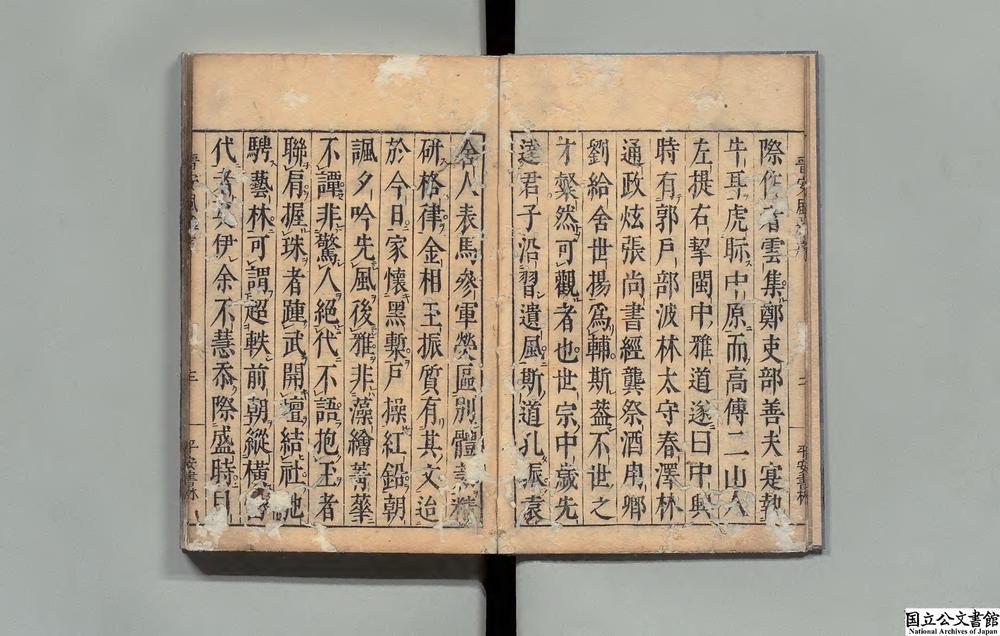 際作者雲集鄭吏部善夫寔執
牛耳虎眎中原而高傅二山人
左提右挈閩中雅道遂曰中興
時有郭戶部波林太守春澤林
通政炫張尚書經龔祭酒用卿
劉給舍世揚爲輔斯蓋不世之
才粲然可觀者也世宗中歲先
達君子沿習遺風斯道孔振袁
晉安風雅序 二 平安書林
舍人表馬參軍熒區別體裁精
研格律金相玉振質有其文迨
於今日家懷黑槧戶操紅鉛朝
諷夕吟先風後雅非藻繪菁華
不譚非驚人絕代不語抱玉者
聯肩握珠者踵武開壇結社馳
騁藝林可謂超軼前朝縱橫
代者矣伊余不慧忝際盛時目
三 平安書林
国立公文書館
National Archives of Japan